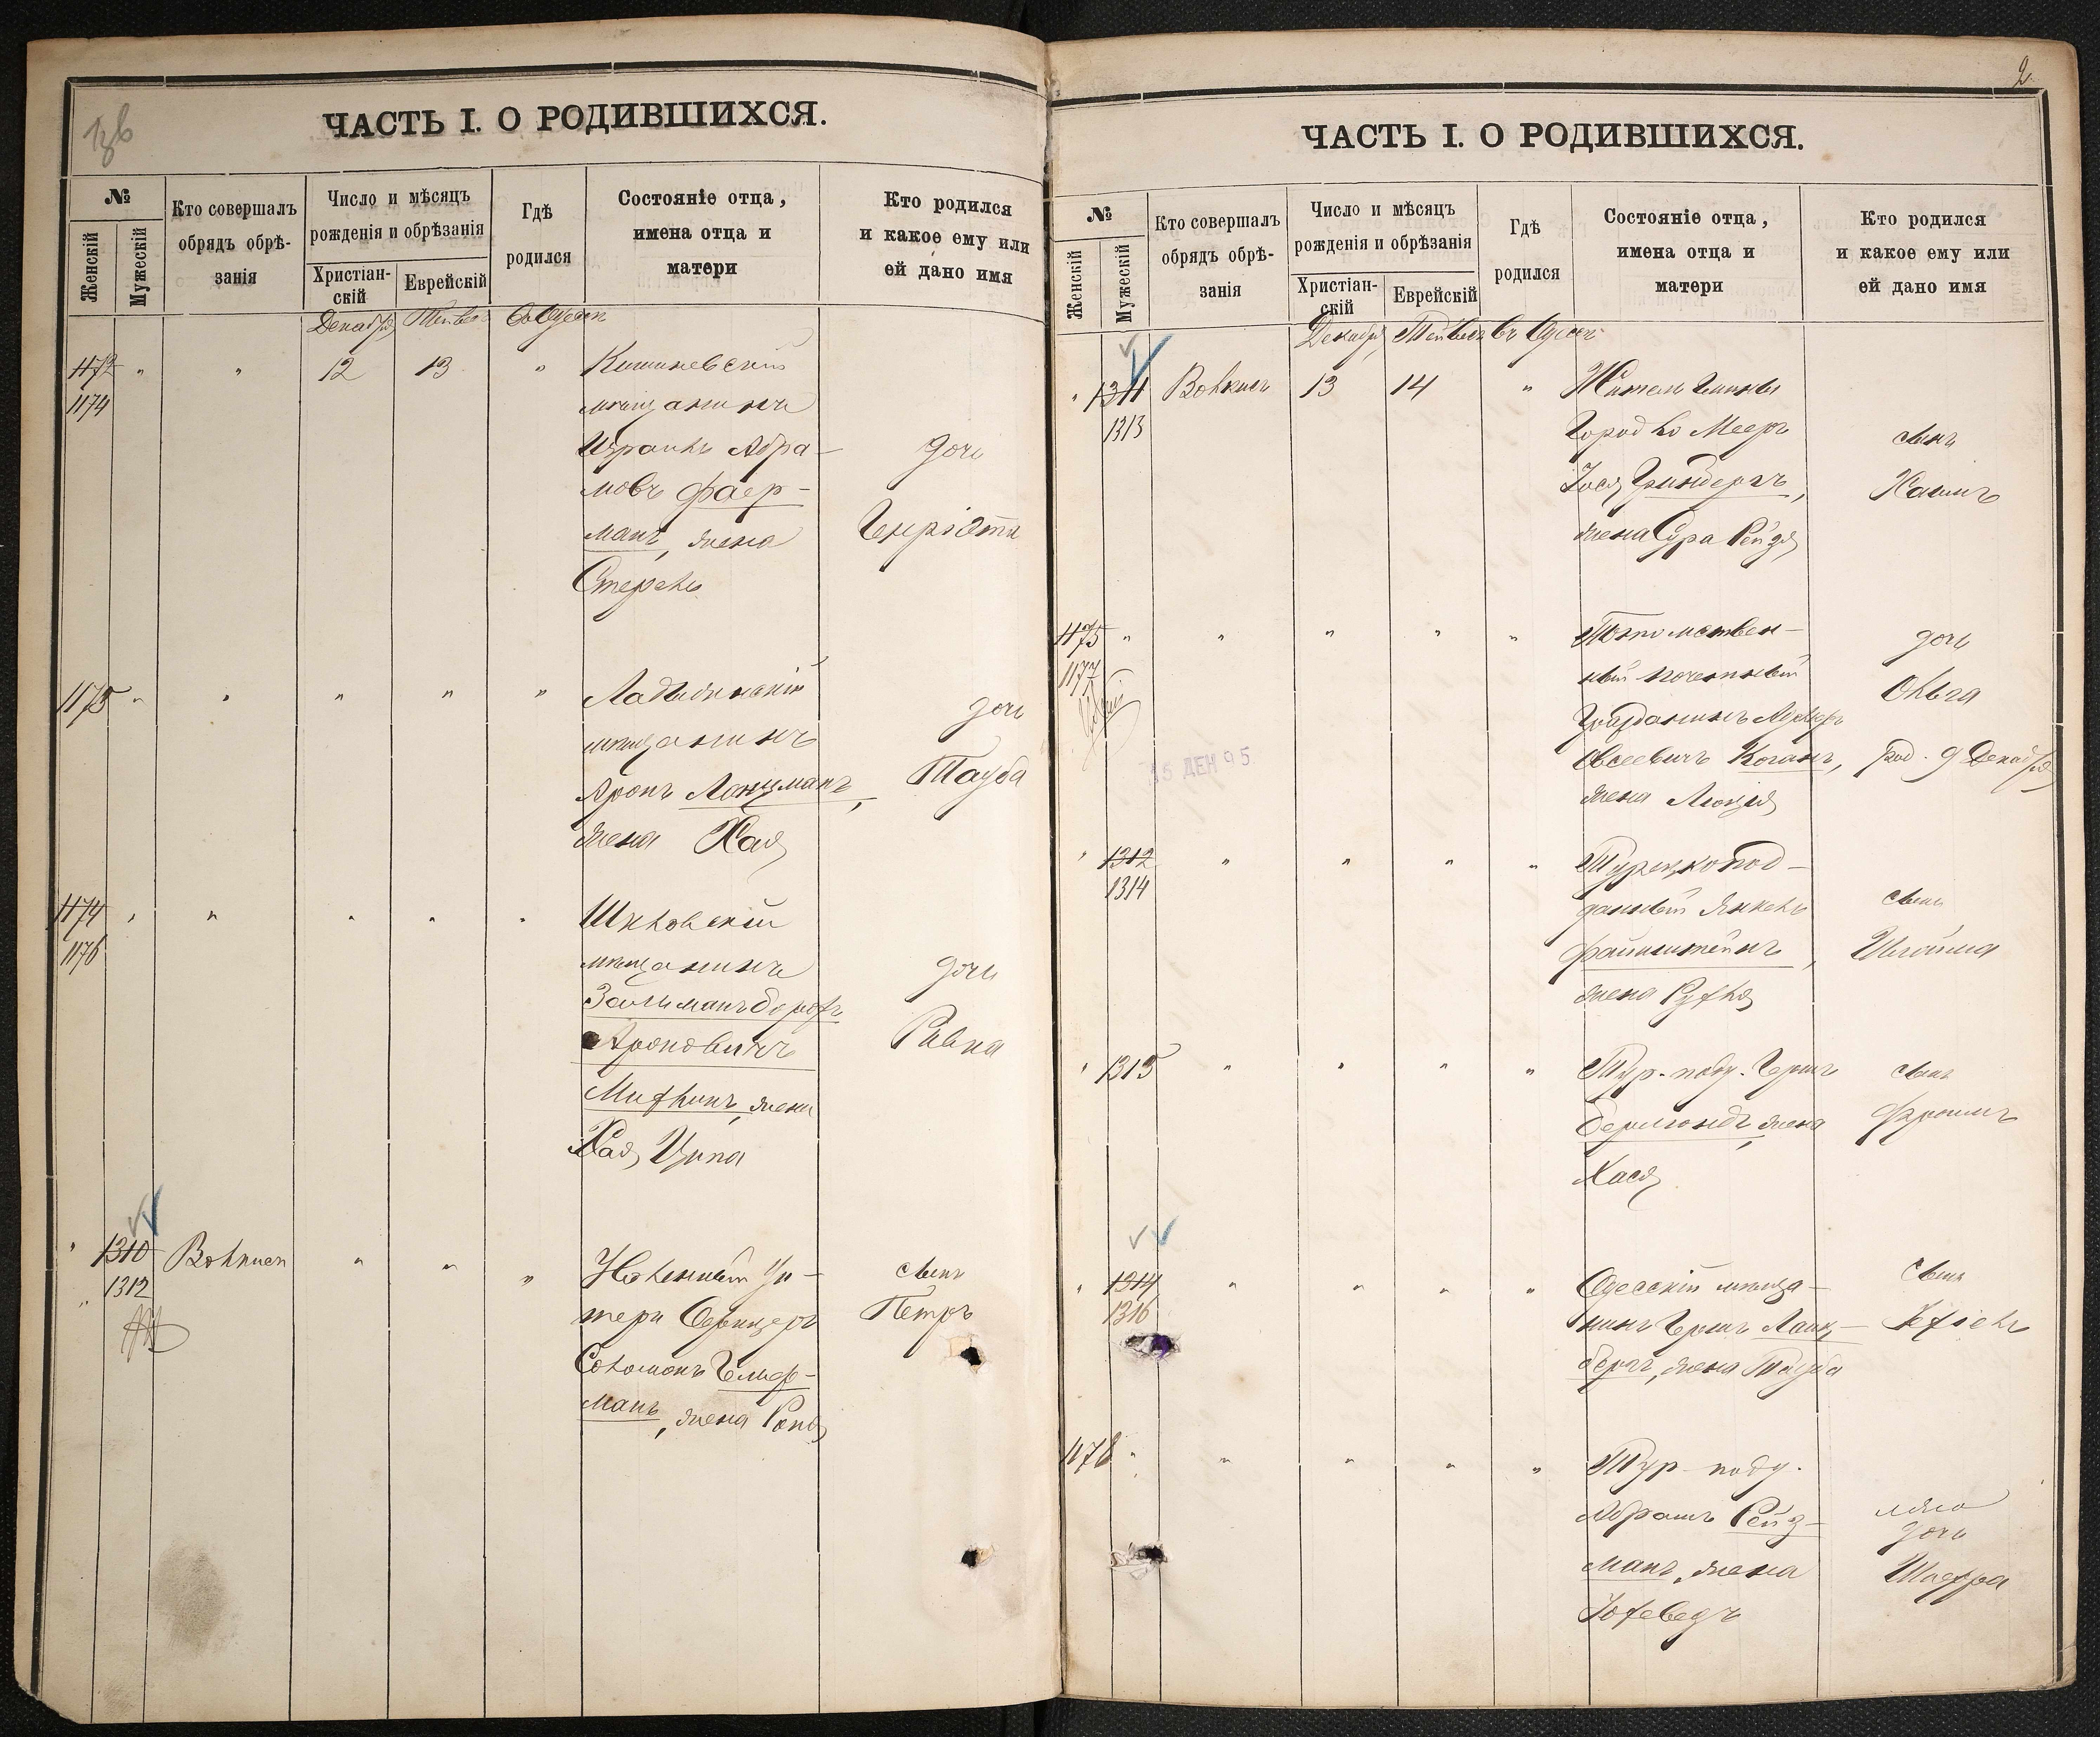 ЧАСТЬ I. О РОДИВШИХСЯ.
№
Женскій
Мужескій
Кто совершалъ
обрядъ обрѣ-
занія
Число и мѣсяцъ
рожденія и обрѣзанія
Христіан-
скій
Еврейскій
Гдѣ
родился
Состояніе отца,
имена отца и
матери
Кто родился
и какое ему или
ей дано имя
Декабря Тейвеса Въ Одессѣ
1172 " " 12 13 " Кишиневскій
1174 мѣщанинъ
Израиль Абра-
мовъ Фаер-
манъ, жена
Стерель
дочь
Генріэта
1175 " " " " " Ладыжинскій
мѣщанинъ
Аронъ Ланцманъ,
жена Хая
дочь
Тауба
1174 " " " " " Шкловскій
1176 мѣщанинъ
Зальманъ Борухъ
Ароновичъ
Митлинъ, жена
Хая Ципа
дочь
Ривка
" 1310 Вольписъ " " "
" 1312
Соломонъ Гельф-
манъ, жена
сынъ
Петръ
2
ЧАСТЬ I. О РОДИВШИХСЯ.
№
Женскій
Мужескій
Кто совершалъ
обрядъ обрѣ-
занія
Число и мѣсяцъ
рожденія и обрѣзанія
Христіан-
скій
Еврейскій
Гдѣ
родился
Состояніе отца,
имена отца и
матери
Кто родился
и какое ему или
ей дано имя
Декабря Тейвеса Въ Одессѣ
" 1311 13 14 " Житель
1313 Мееръ
Іося Гринбергъ,
жена Сура Рейзя
сынъ
Хаимъ
1175 " " " " " Потомствен-
1177 ный почетный
Гражданинъ
Евсеевичъ Коганъ,
жена Люция
дочь
Ольга
род. 9 Декабря
15 ДЕК 95
" 1312 " " " " Турецкопод-
1314 данный Янкель
Файнштейнъ,
жена Рухля
сынъ
" 1315 " " " " Тур. подд. Гершъ
Бермондъ, жена
Хася
сынъ
Фроимъ
" 1314 " " " " Одесскій мѣща-
1316 нинъ Гершъ Ланд-
бергъ, жена Тауба
сынъ
Іехіель
1178 " " " " " Тур. подд.
Абрамъ Рейз-
манъ, жена
Іохеведъ
дочь